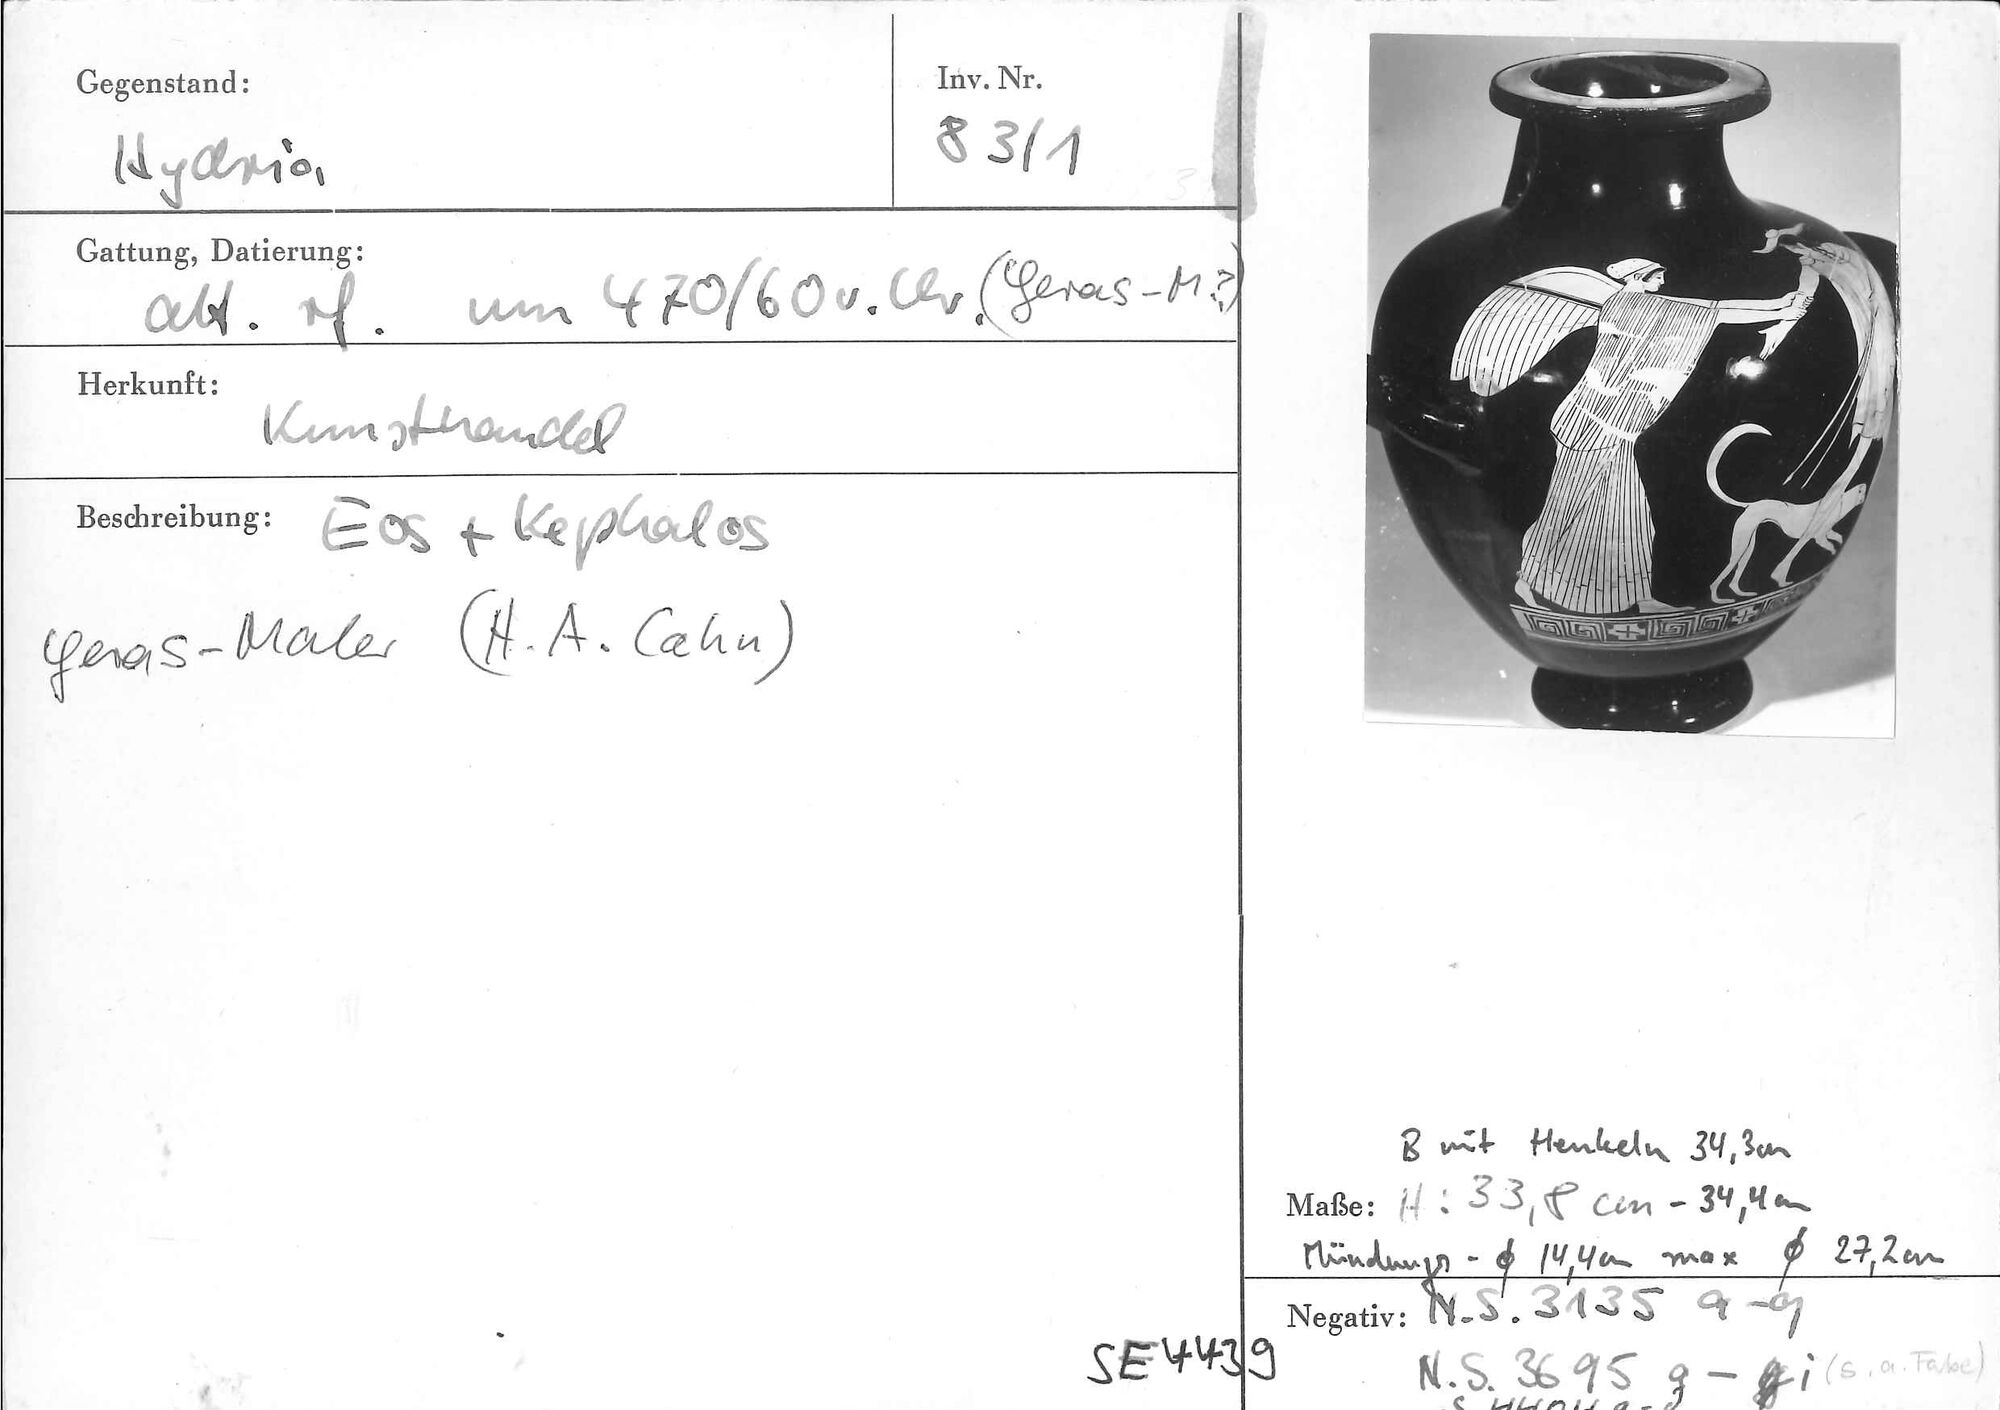 Gegenstand:
Hydria
Inv. Nr.
83/1
Gattung, Datierung:
att. rf. um 470/60 v. Chr. (Geras-M?)
Herkunft:
Kunsthandel
Beschreibung: Eos + Kephalos
Geras-Maler (H. A. Cahn)
B mit Henkeln 34,3cm
Maße: H: 33,8 cm - 34,4cm
Mündungs-ϕ 14,4cm max ϕ 27,2cm
Negativ: N.S. 3135 a-g
N.S. 3695 g - i (s. a. Farbe)
SE4439